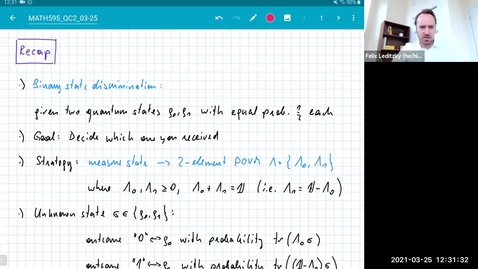 12:31
MATH595_QC2_03-25
Recap
·) Binary state discrimination:
given two quantum states ρ₀, ρ₁ with equal prob. 1/2 each
·) Goal: Decide which one you received
·) Strategy: measure state → 2-element POVM Λ = {Λ₀, Λ₁}
where Λ₀, Λ₁ ≥ 0, Λ₀ + Λ₁ = 𝟙 (i.e. Λ₁ = 𝟙 - Λ₀)
·) Unknown state σ ∈ {ρ₀, ρ₁}:
outcome "0" ↔ ρ₀ with probability tr(Λ₀σ)
outcome "1" ↔ ρ₁ with probability tr((𝟙-Λ₀)σ)
Felix Leditzky (he/hi...
2021-03-25 12:31:32